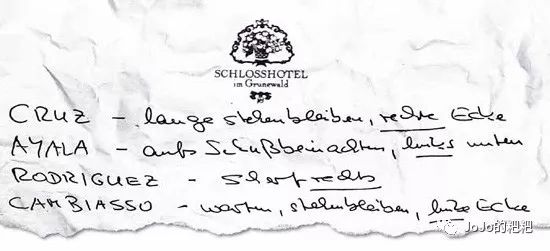 SCHLOSSHOTEL
im Grunewald
CRUZ – lange stehenbleiben, rechte Ecke
AYALA – aufs Schußbein achten, links unten
RODRIGUEZ – scharf rechts
CAMBIASSO – warten, stehenbleiben, linke Ecke
JoJo的粑粑